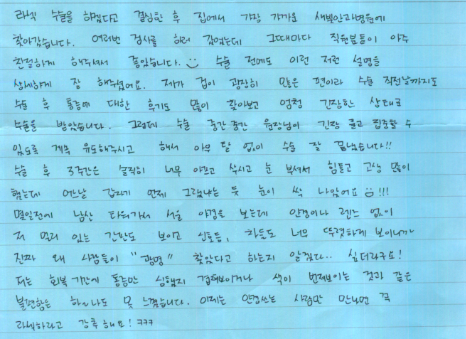 라섹 수술을 하겠다고 결심한 후 집에서 가장 가까운 새빛안과병원에
찾아갔습니다. 여러번 검사를 하러 갔었는데 그때마다 직원분들이 아주
친절하게 해주셔서 좋았습니다. 수술 전에도 이런 저런 설명을
상세하게 잘 해주셨어요. 제가 겁이 굉장히 많은 편이라 수술 직전날까지도
수술 후 통증에 대한 후기도 많이 찾아보고 엄청 긴장한 상태로
수술을 받았습니다. 그런데 수술 중간중간 원장님이 긴장 풀고 집중할 수
있도록 계속 유도해주시고 해서 아무 탈 없이 수술 잘 끝냈습니다!!
수술 후 3주간은 솔직히 너무 아프고 시리고 눈 부셔서 힘들고 고생 많이
했는데 어느날 갑자기 언제 그랬냐는 듯 눈이 싹 나았어요 !!!
몇일전에 남산 타워가서 서울 야경을 보는데 안경이나 렌즈 없이
저 멀리 있는 간판도 보이고 신호등, 차들도 너무 또렷하게 보이니까
진짜 왜 사람들이 "광명" 찾았다고 하는지 알겠다.. 싶더라구요!
저는 회복기간에 통증만 심했지 겹쳐보이거나 색이 번져보이는 것과 같은
불편함은 하나도 못 느꼈습니다. 이제는 안경쓰는 사람만 만나면 꼭
라섹하라고 강추해요! ㅋㅋㅋ